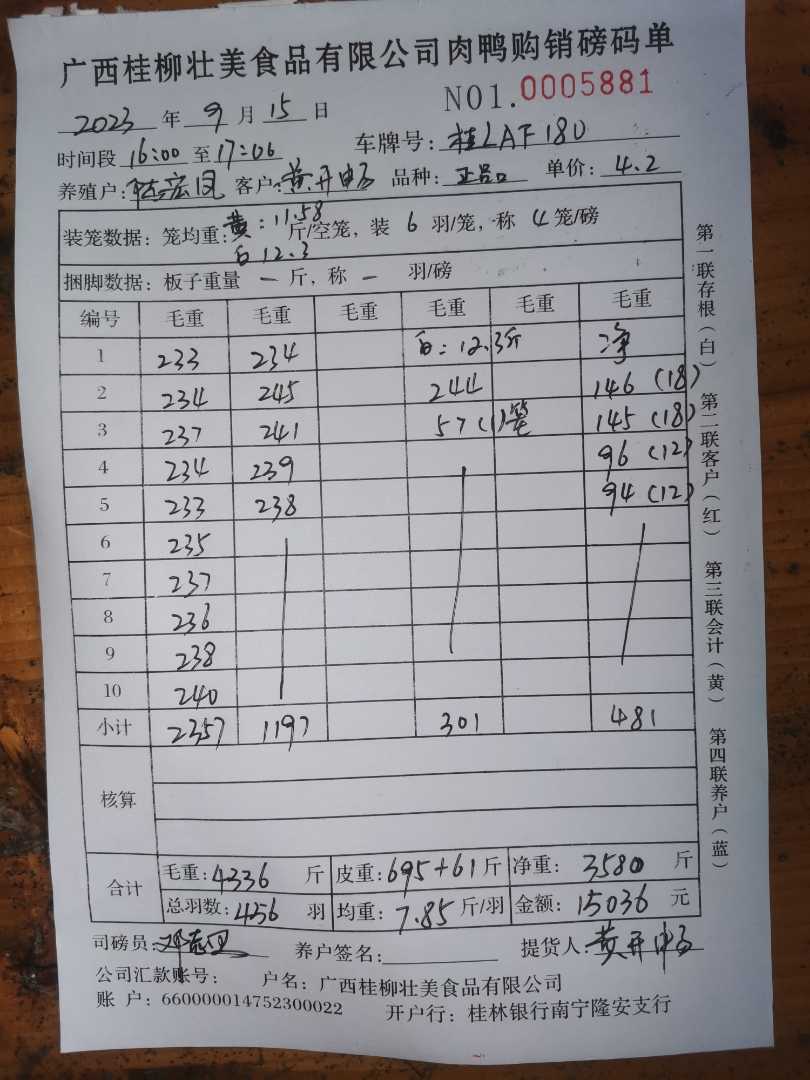 广西桂柳壮美食品有限公司肉鸭购销磅码单
2023 年 9 月 15 日 NO1.0005881
时间段 16:00 至 17:06 车牌号: 桂LAF180
养殖户: 宏凤 客户: 黄开畅 品种: 正品 单价: 4.2
装笼数据: 笼均重: 黄:11.58 斤/空笼, 装 6 羽/笼, 称 4 笼/磅
白12.3
捆脚数据: 板子重量 — 斤, 称 — 羽/磅
编号 毛重 毛重 毛重 毛重 毛重 毛重
1 233 234 白:12.3斤 净
2 234 245 244 146 (18)
3 237 241 57 (1)笼 145 (18)
4 234 239 96 (12)
5 233 238 94 (12)
6 235
7 237
8 236
9 238
10 240
小计 2357 1197 301 481
核算
合计 毛重: 4336 斤 皮重: 695+61 斤 净重: 3580 斤
总羽数: 456 羽 均重: 7.85 斤/羽 金额: 15036 元
司磅员: 养户签名: 提货人: 黄开畅
公司汇款账号: 户名: 广西桂柳壮美食品有限公司
账 户: 660000014752300022 开户行: 桂林银行南宁隆安支行
第一联存根(白) 第二联客户(红) 第三联会计(黄) 第四联养户(蓝)